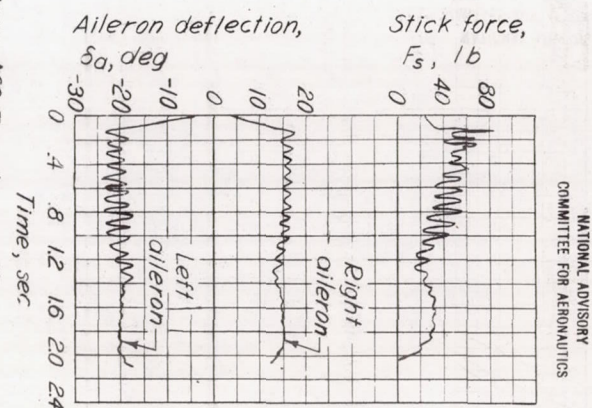 Aileron deflection,
δa, deg
-30 -20 -10 0 10 20
Stick force,
Fs, lb
0 40 80
0 .4 .8 1.2 1.6 2.0 2.4
Time, sec
Left
aileron
Right
aileron
NATIONAL ADVISORY
COMMITTEE FOR AERONAUTICS